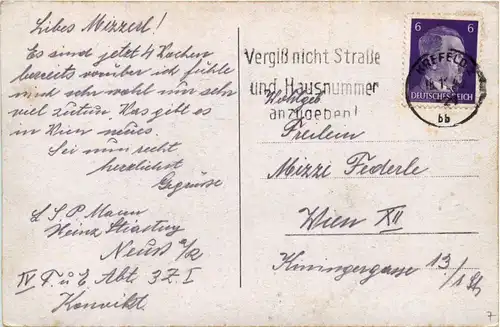 Libes Mizzerl!
Es sind jetzt 4 Wochen
bereits vorüber ich fühle
mich sehr wohl um sehr
viel zutun. Was gibt es
in Wien neues.
Sei nun recht
herzlichst
Gegrüsst
Heinz
Neuß a/R
IV F. u E. Abt. 3. Z. I
Konvikt.
Vergiß nicht Straße
und Hausnummer
anzugeben!
KREFELD
bb
6 6
DEUTSCHES REICH
Wohlgeb.
Freilein
Mizzi Federle
Wien XII
Kiningergasse 13/1 St
7